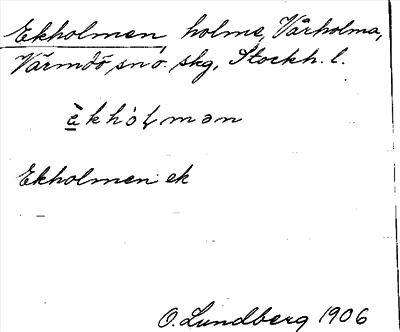 Ekholmen, holme, Vårholma,
Värmdö sn o. skg, Stockh. l.
èkhòɫmən
Ekholmen ek
O. Lundberg 1906